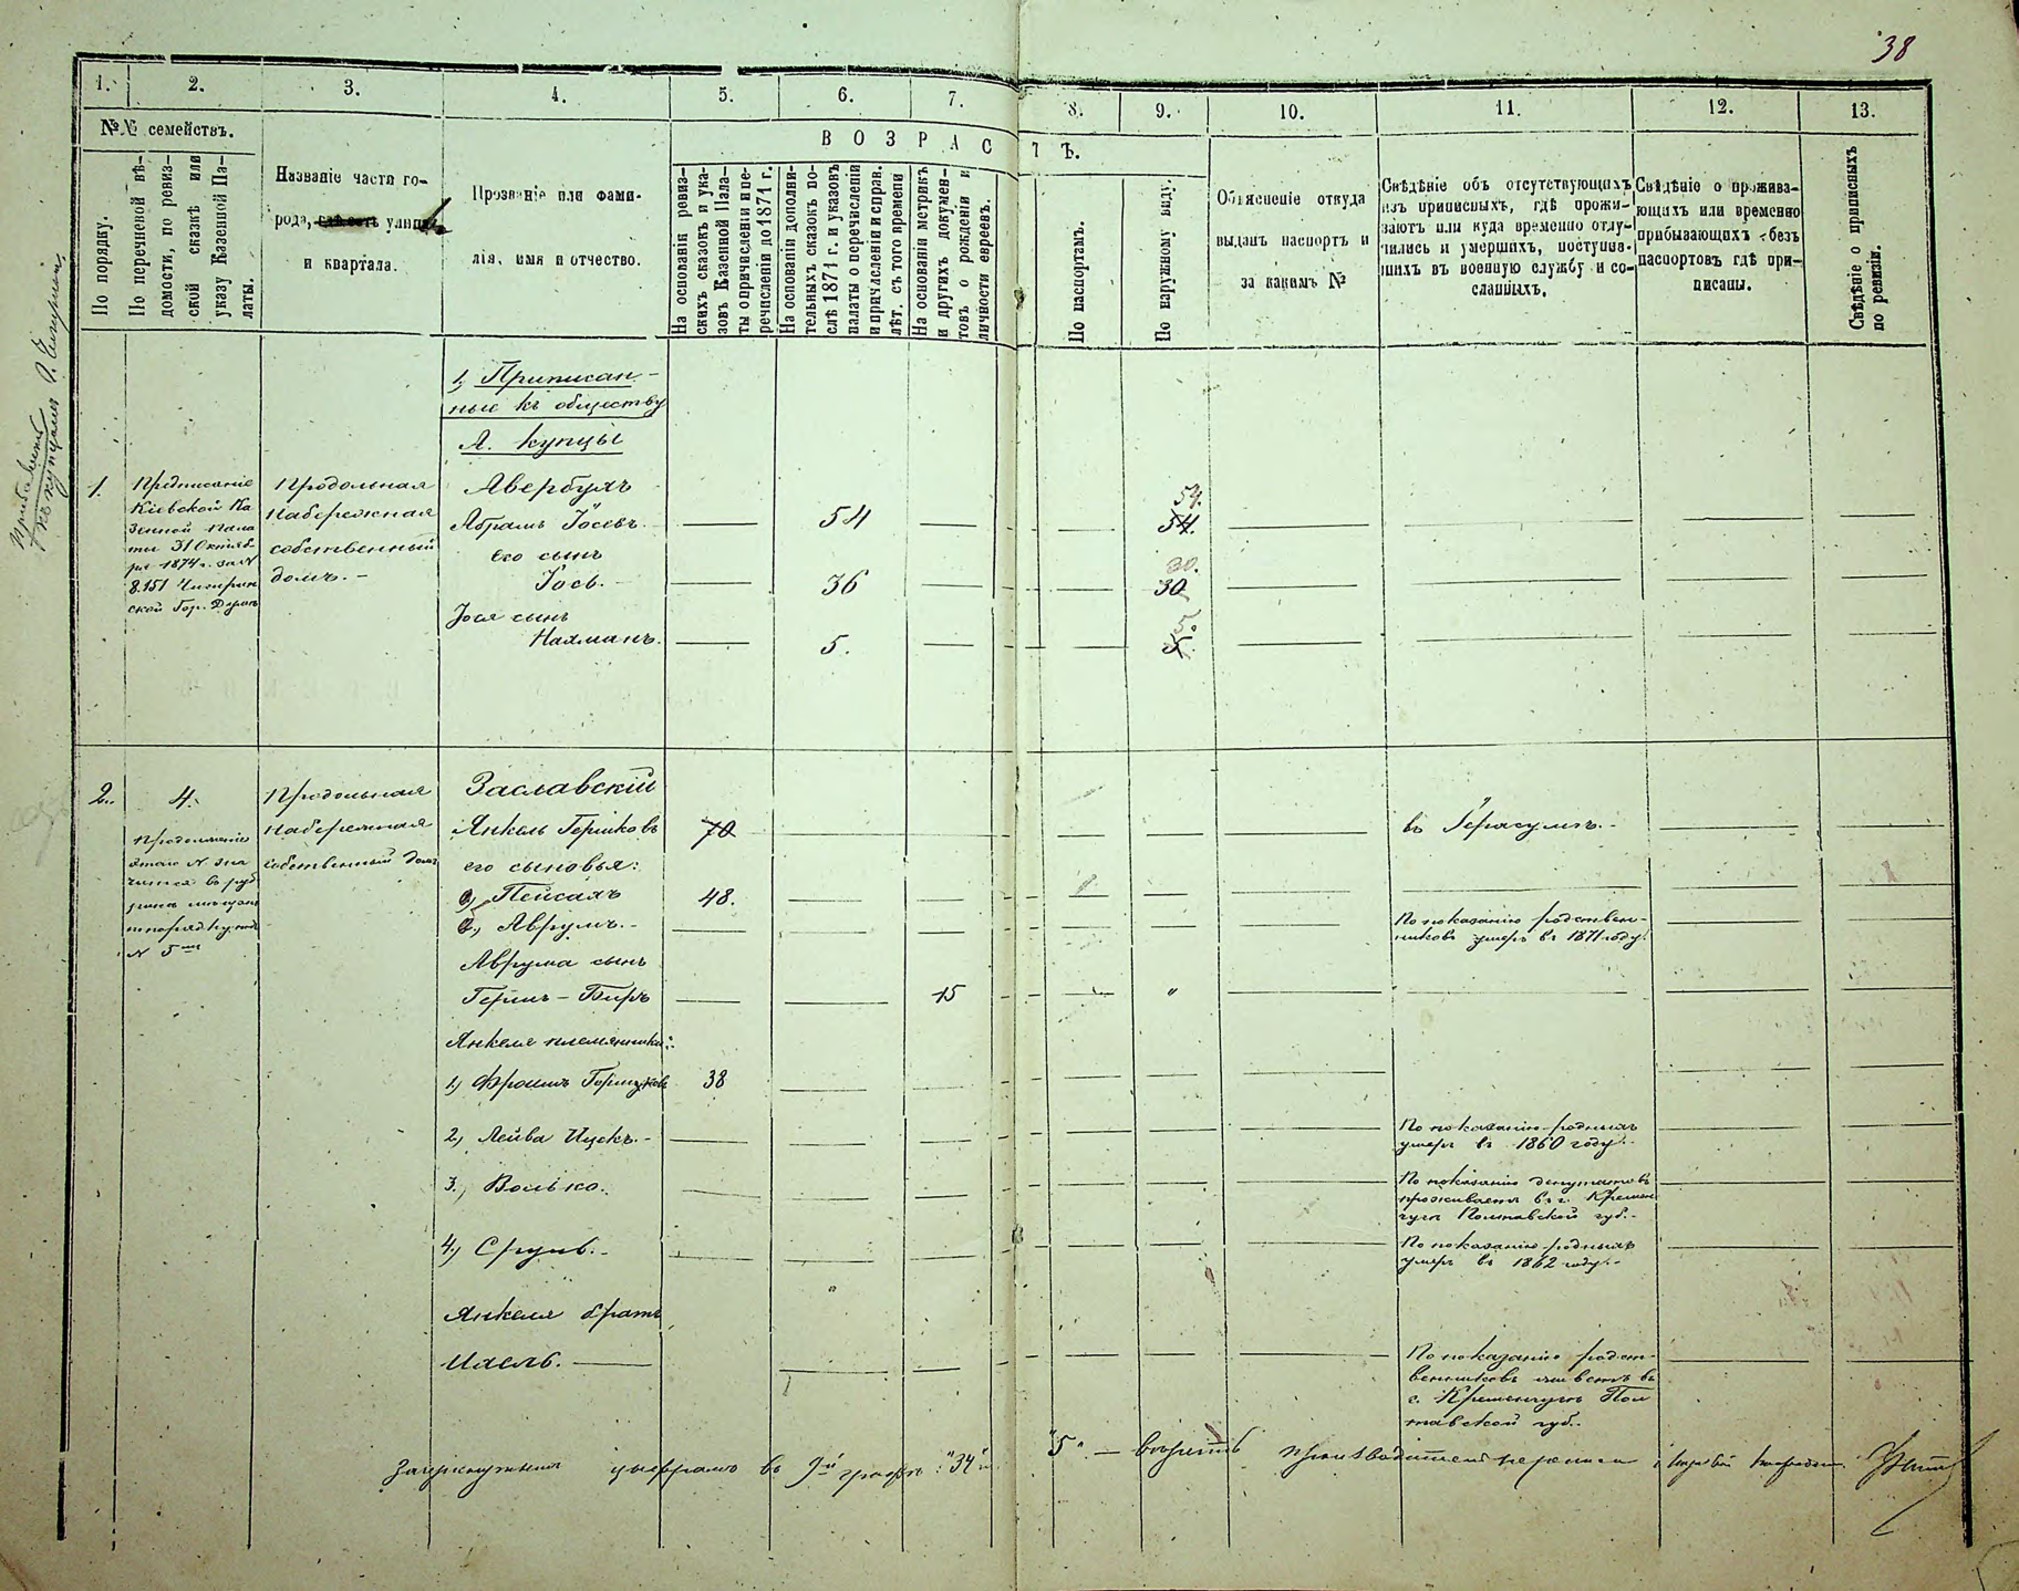 38
1.
2.
3.
4.
5.
6.
7.
8.
9.
10.
11.
12.
13.
№№ семействъ.
По порядку.
По перечневой вѣ-
домости, по ревиз-
ской сказкѣ или
указу Казенной Па-
латы.
Названіе части го-
рода, улицы
и квартала.
Прозваніе или фами-
лія, имя и отчество.
ВОЗРАСТЪ.
На основаніи ревиз-
скихъ сказокъ и ука-
зовъ Казенной Пала-
ты о причисленіи и пе-
речисленіи до 1871 г.
На основаніи дополни-
тельныхъ сказокъ по-
слѣ 1871 г. и указовъ
палаты о перечисленіи
и причисленіи и справ.
лѣт. съ того времени
На основаніи метрикъ
и другихъ докумен-
товъ о рожденіи и
личности евреевъ.
По паспортамъ.
По наружному виду.
Объясненіе откуда
выданъ паспортъ и
за какимъ №
Свѣдѣніе объ отсутствующихъ
изъ приписныхъ, гдѣ прожи-
ваютъ или куда временно отлу-
чились и умершихъ, поступив-
шихъ въ военную службу и со-
сланныхъ.
Свѣдѣніе о прожива-
ющихъ или временно
прибывающихъ безъ
паспортовъ гдѣ при-
писаны.
Свѣдѣніе о приписныхъ
по ревизіи.
1, Приписан-
ные къ обществу
А. купцы
1.
Предписаніе
Кіевской Ка
зенной Пала
ты 31 Октяб-
ря 1874 г. за N
8.151 Чигирин
ской Гор.
Продольная
Набережная
собственный
домъ. -
Авербухъ
Абрамъ Іосевъ
54
54.
54.
его сынъ
Іось. -
36
30.
30
Іося сынъ
Нахманъ.
5.
5.
5.
2.
4.
Продолженіе
этого N зна
чится въ руб
N 5
Продольная
Набережная
собственный домъ
Заславскій
Янкель Гершковъ
70
въ
его сыновья:
Пейсахъ
48.
2, Аврумъ. -
По показанію родствен-
никовъ умеръ въ 1871 году.
Аврума сынъ
Гершъ - Беръ
15
"
Янкеля племянники:
1, Фроимъ
38
2, Лейва Ицекъ. -
По показанію родныхъ
умеръ въ 1860 году. -
3, Волько.
По показанію депутатовъ
проживаетъ въ г. Кремен
чугѣ Полтавской губ. -
4, Сруль. -
По показанію родныхъ
умеръ въ 1862 году. -
Янкеля братъ
Ихель.
По показанію родст-
венниковъ живетъ въ
г. Кременчугѣ Пол
тавской губ.
въ 9й графѣ: "34" "5" -